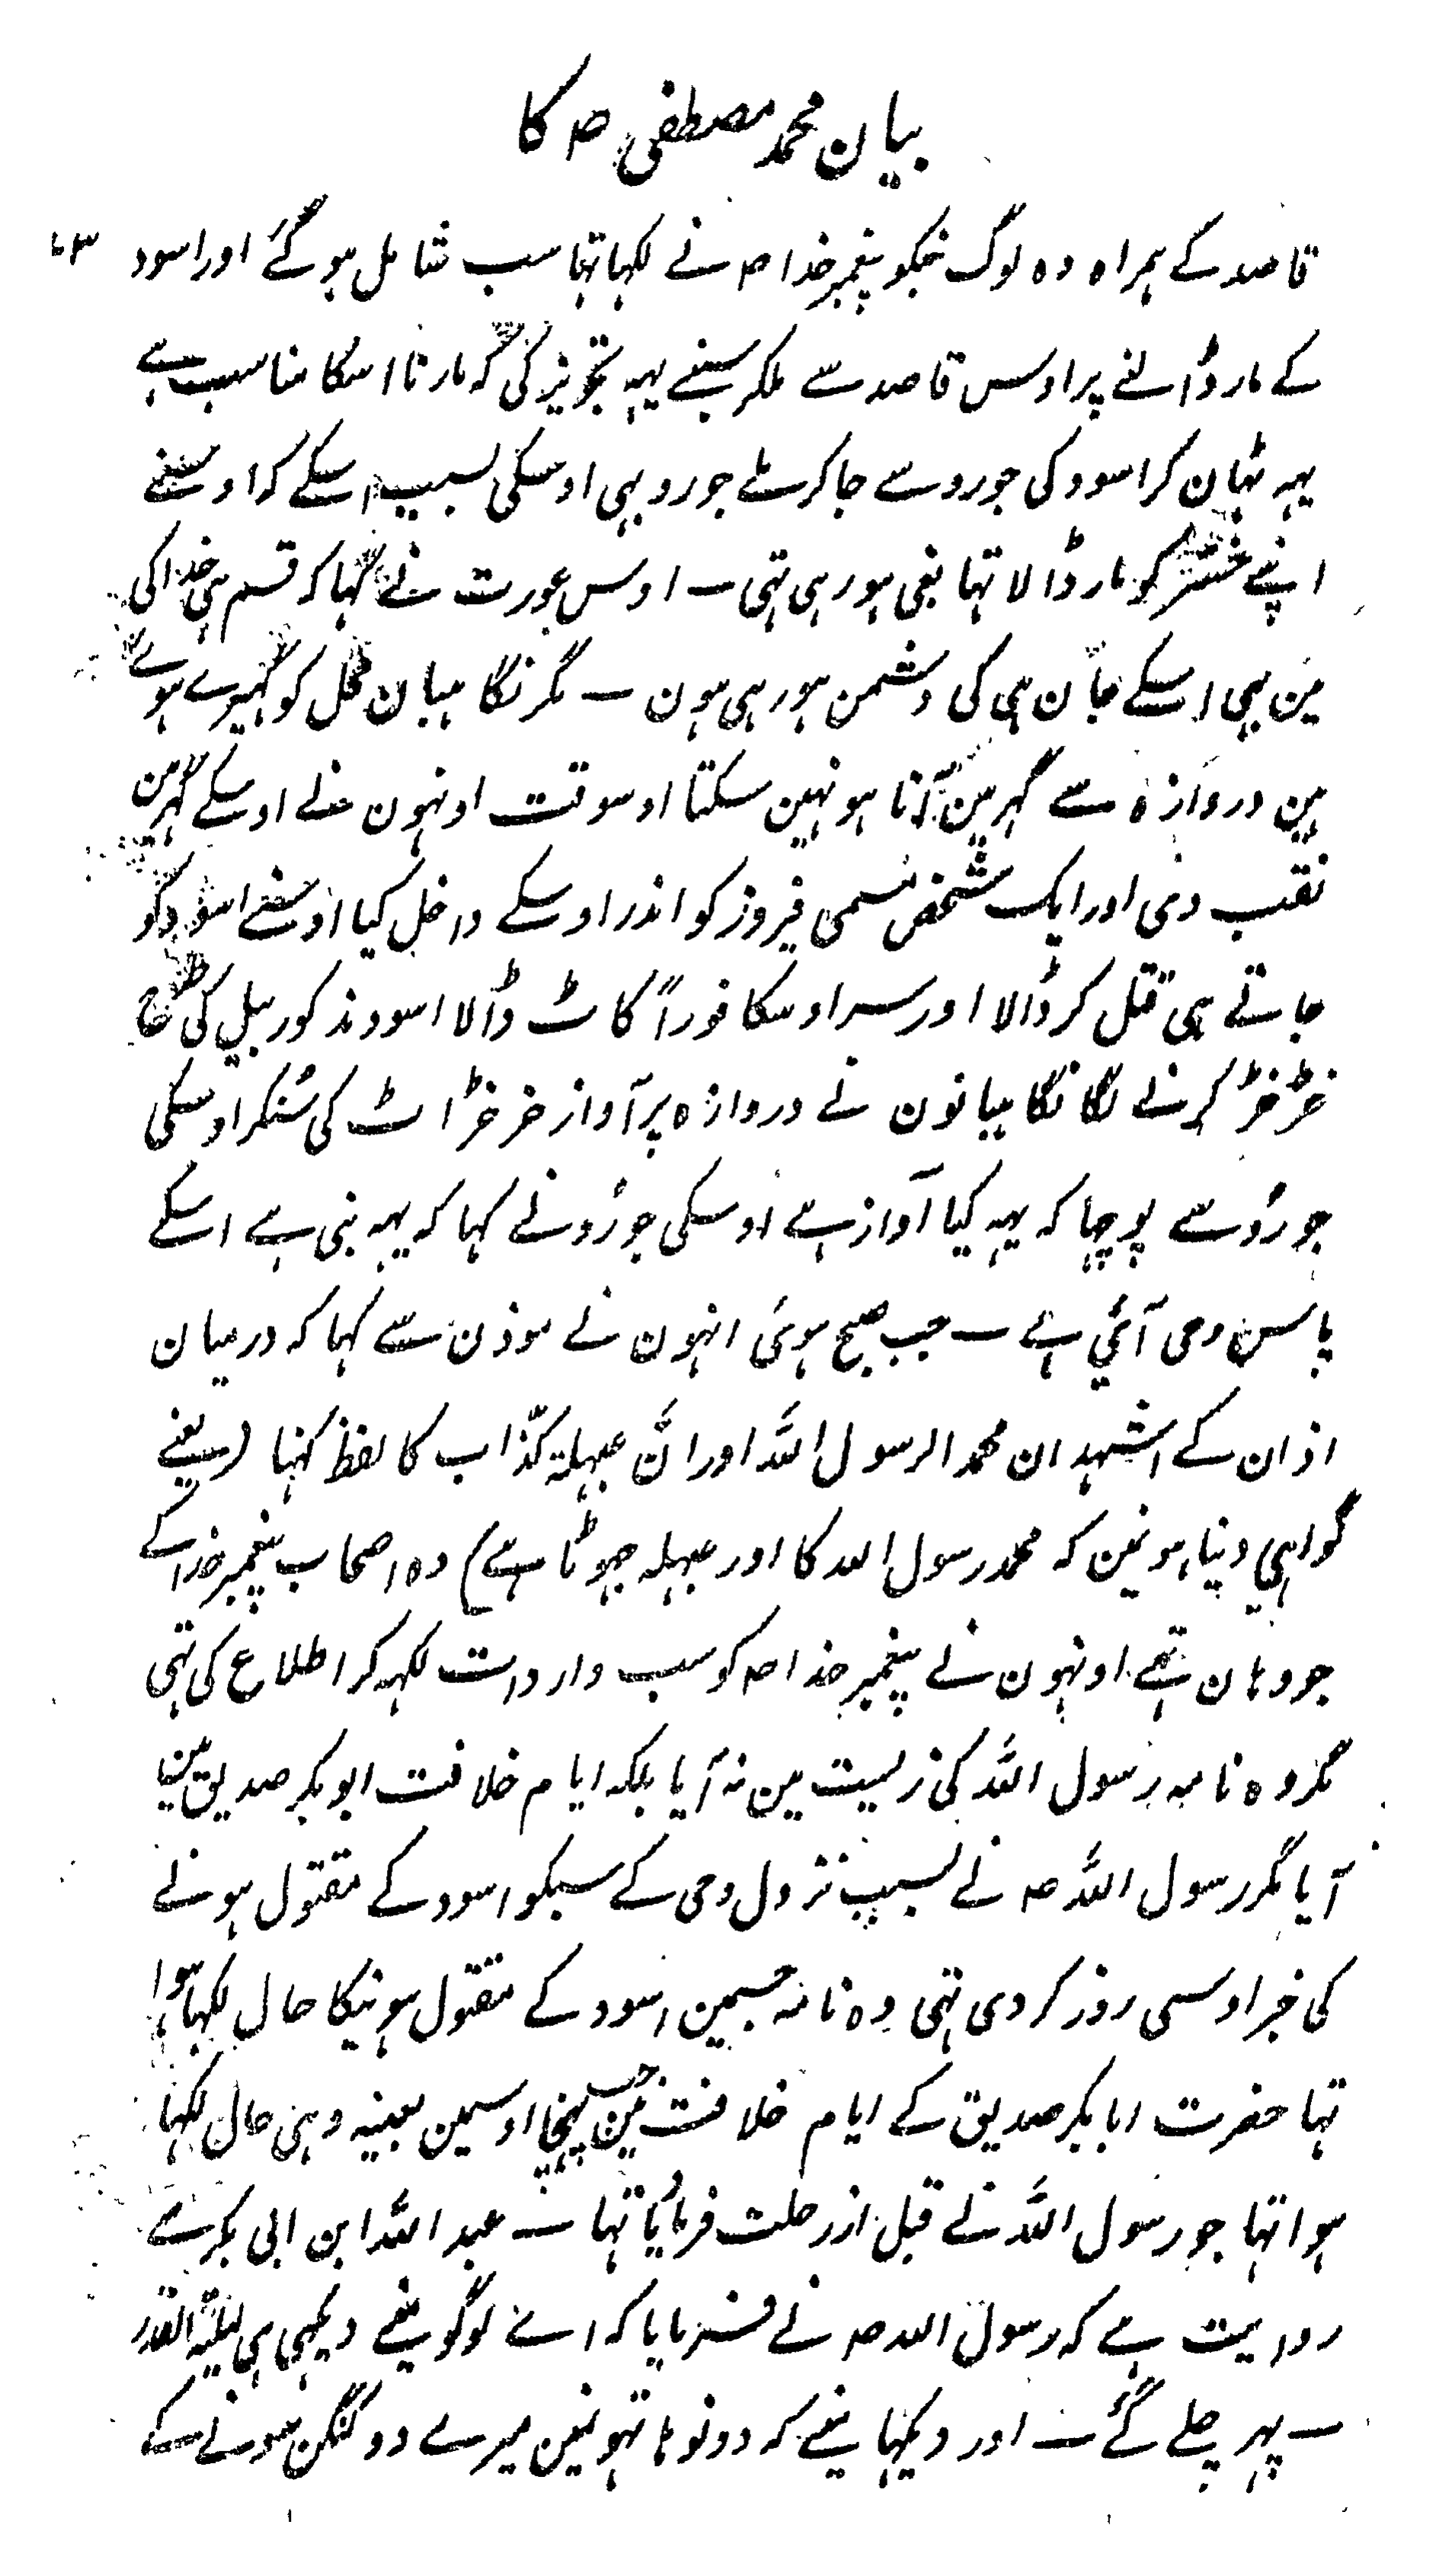 بیان محمد مصطفی ص کا
قاصد کے ہمراہ وہ لوگ جنکو پیغمبر خدا ص نے لکہا تہا سب شامل ہو گئے اور اسود
کے مار ڈالنے پر اوس قاصد سے ملکر سبنے یہہ تجویز کی کہ مارنا اسکا مناسب ہے
یہہ ٹہان کر اسود کی جورو سے جا کر ملے جورو بہی اوسکی بسبب اسکے کہ اوسنے
اپنے خسر کو مار ڈالا تہا بغی ہو رہی تہی ۔ اوس عورت نے کہا کہ قسم ہی خدا کی
مین بہی اسکے جان ہی کی دشمن ہو رہی ہون ۔ مگر نگاہبان محل کو گہیرے ہوے
ہین دروازہ سے گہر مین آنا ہو نہین سکتا اوسوقت اونہون نے اوسکے گہر مین
نقب دی اور ایک شخص مسمی فیروز کو اندر اوسکے داخل کیا اوسنے اسود کو
جاتے ہی قتل کر ڈالا اور سر اوسکا فوراً کاٹ ڈالا اسود مذکور بیل کی طرح
خڑخڑ کرنے لگا نگاہبانون نے دروازہ پر آواز خرخڑاٹ کی سُنکر اوسکی
جورُو سے پوچہا کہ یہہ کیا آواز ہے اوسکی جورُو نے کہا کہ یہہ نبی ہے اسکے
پاس وحی آئی ہے ۔ جب صبح ہوئی انہون نے موذن سے کہا کہ درمیان
اذان کے اشہد ان محمد الرسول اللہ اور انَّ عبہلۃ کذّاب کا لفظ کہنا (یعنے
گواہی دیتا ہونمین کہ محمد رسول اللہ کا اور عبہلہ جہوٹا ہے) وہ اصحاب پیغمبر خدا کے
جو وہان تہے اونہون نے پیغمبر خدا ص کو سب واردات لکہہ کر اطلاع کی تہی
مگر وہ نامہ رسول اللہ کی زیست مین نہ آیا بلکہ ایام خلافت ابوبکر صدیق مین
آیا مگر رسول اللہ ص نے بسبب نزول وحی کے سبکو اسود کے مقتول ہونے
کی خبر اوسی روز کر دی تہی وہ نامہ جسمین اسود کے مقتول ہونیکا حال لکہا ہوا
تہا حضرت ابابکر صدیق کے ایام خلافت مین جب پہنچا اوسمین بعینہ وہی حال لکہا
ہوا تہا جو رسول اللہ نے قبل از رحلت فرمایا تہا ۔ عبد اللہ ابن ابی بکر سے
روایت ہے کہ رسول اللہ ص نے فرمایا کہ اے لوگو مینے دیکہی ہی لیلۃ القدر
۔ پہر چلے گئے ۔ اور دیکہا مینے کہ دونو ہاتہونمین میرے دو کنگن سونے کے